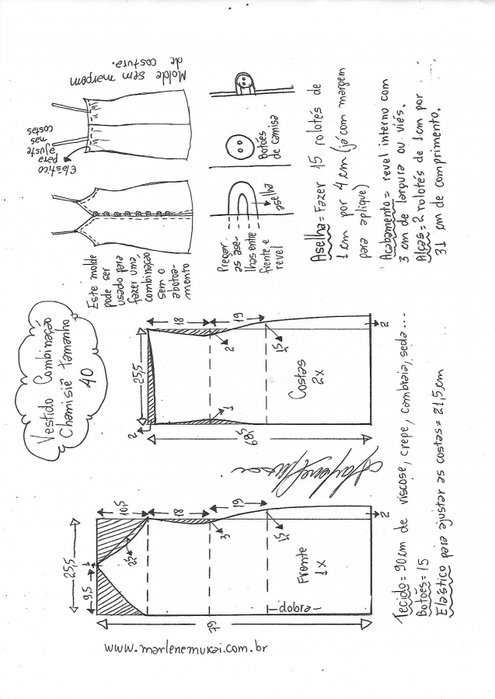 Vestido Combinação
Chamisiê tamanho
40
Este molde
pode ser
usado para
fazer uma
combinação
sem o
abotoa-
mento
Elástico
para
ajuste
nas
costas
Molde sem margem
de costura.
Pregar
as ase-
lhas entre
frente e
revel
aselha
Botões
de camisa
Aselha = Fazer 15 rolotês de
1 cm por 4 cm (já com margem
para aplique)
Acabamento = revel interno com
3 cm de largura ou viés.
Alças = 2 rolotês de 1 cm por
31 cm de comprimento.
25,5
9,5
1
10,5
18
19
3
1,5
2
79
Frente
1x
dobra
25,5
2
18
19
2
1
1,5
2
68,5
Costas
2x
Tecido = 90 cm de viscose, crepe, cambraia, seda...
Botões = 15
Elástico para ajustar as costas = 21,5 cm
www.marlenemukai.com.br